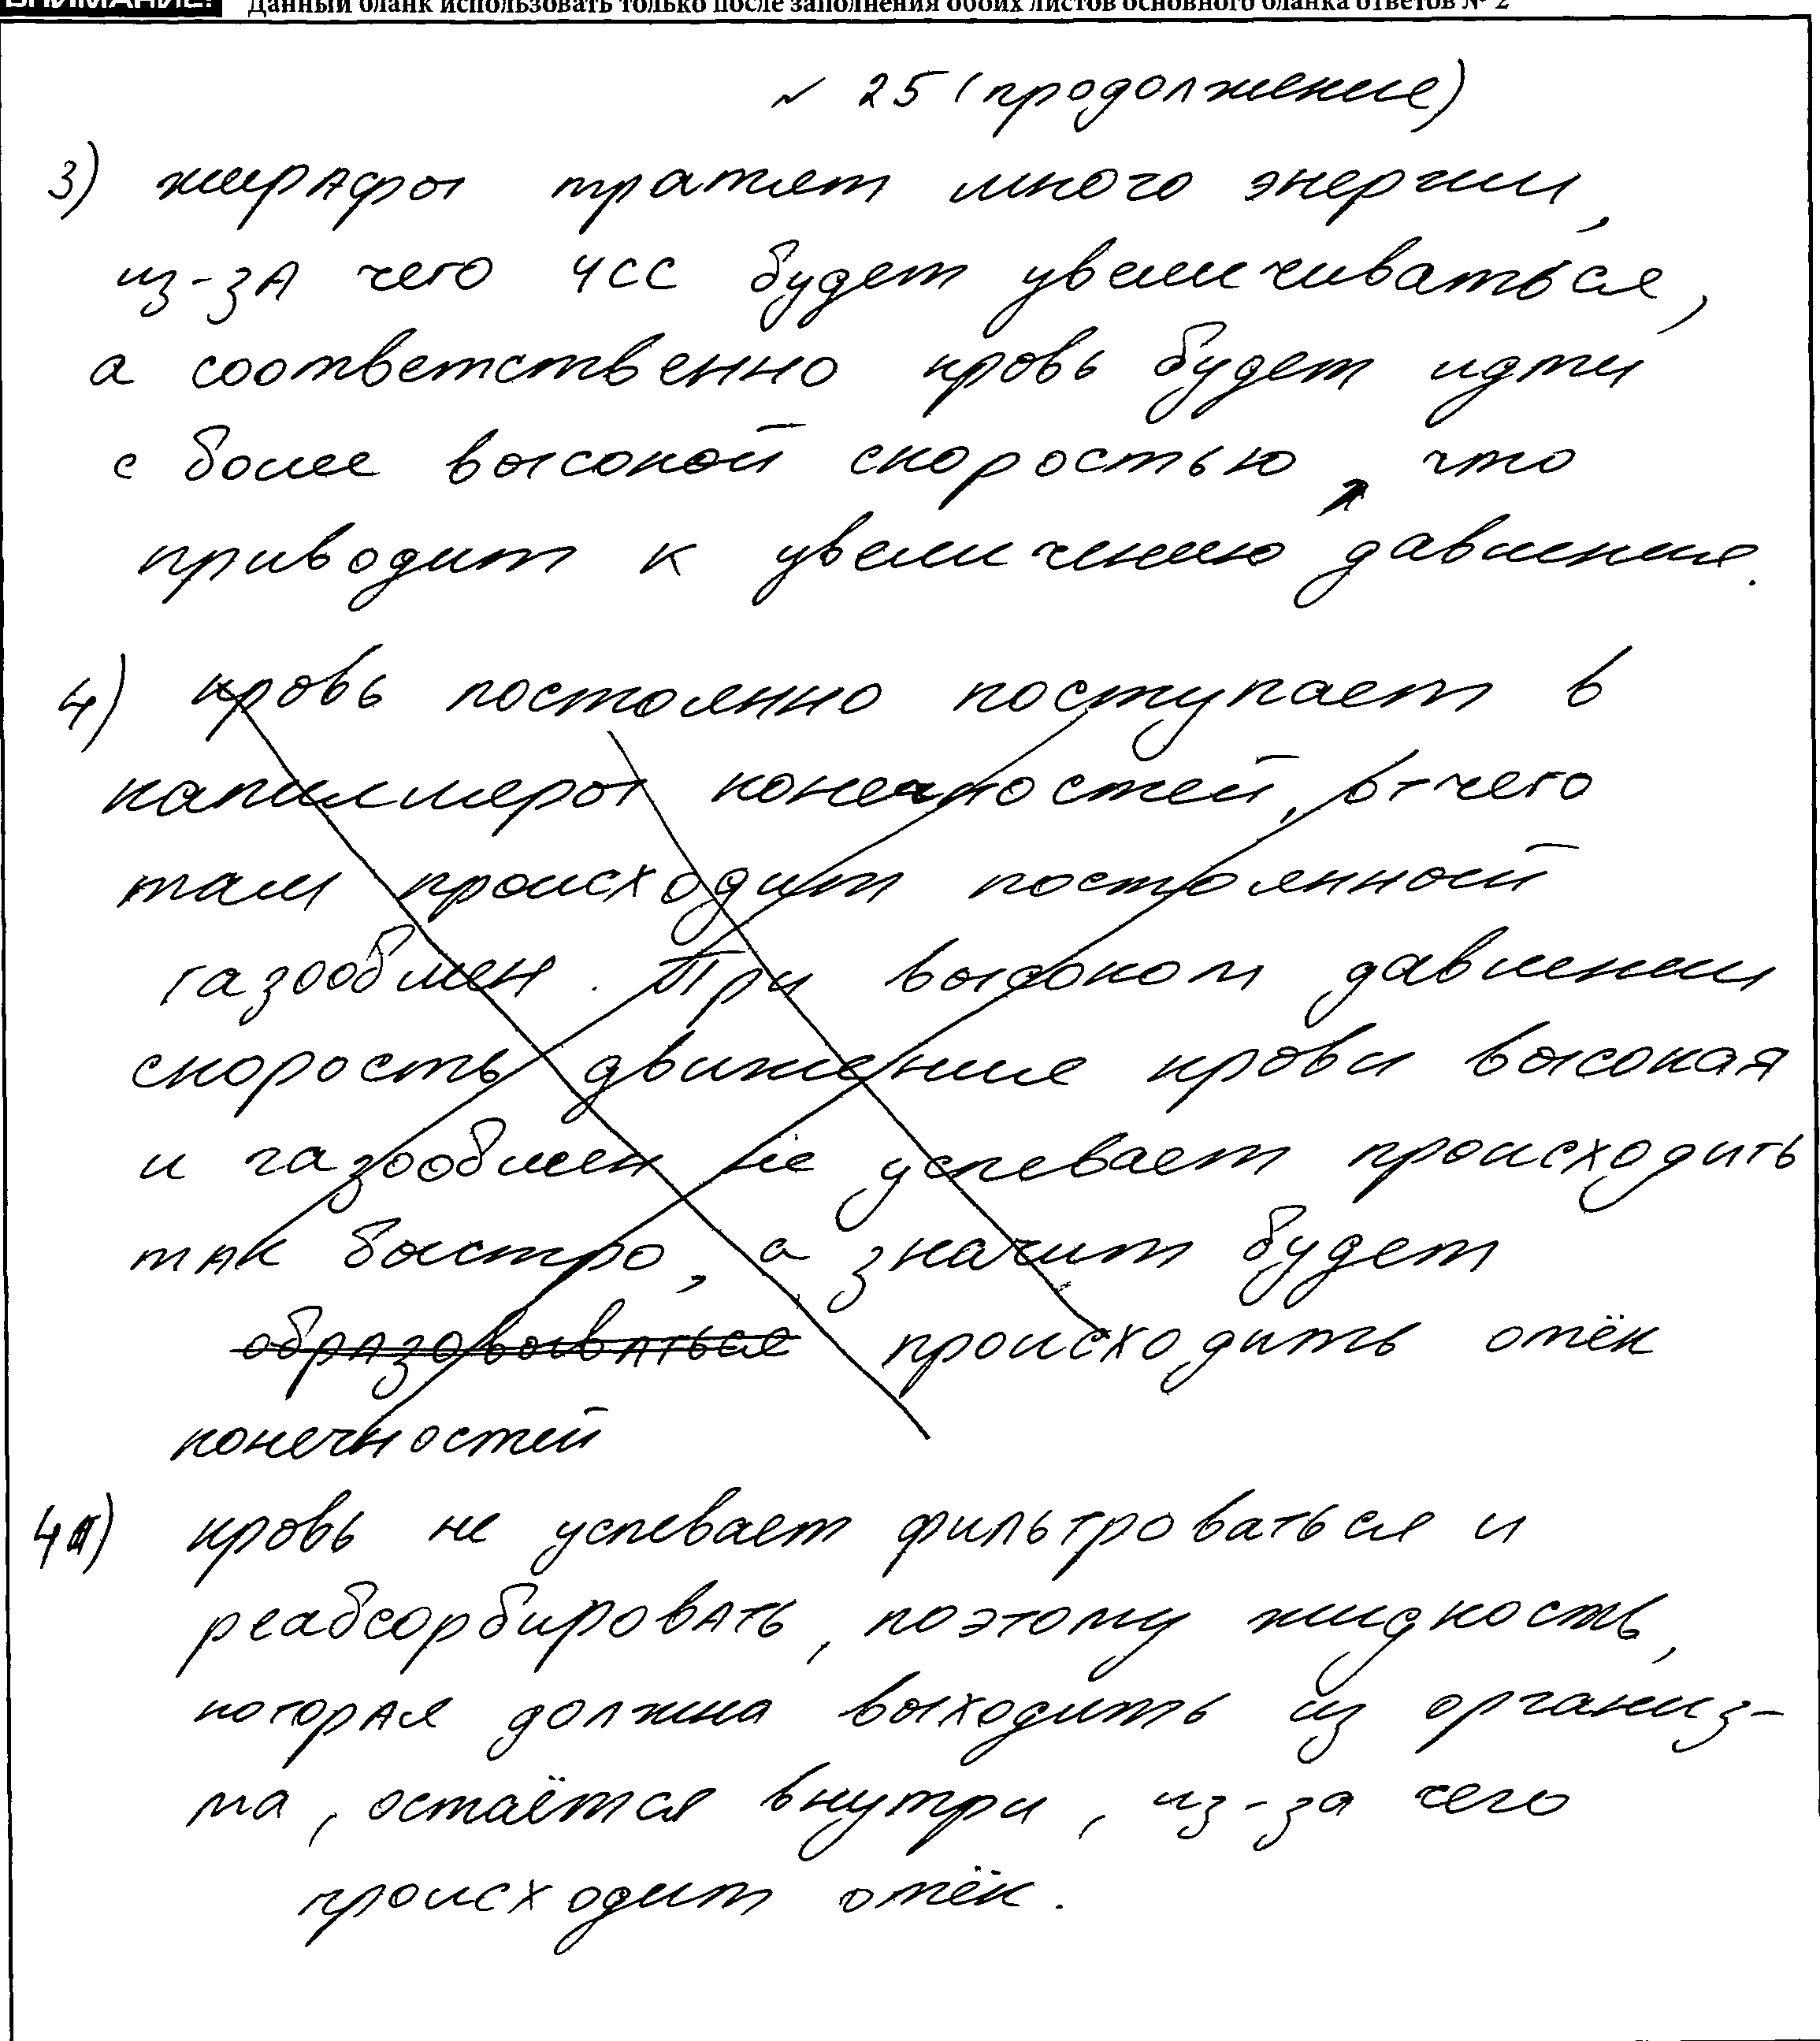 ВНИМАНИЕ! Данный бланк использовать только после заполнения обоих листов основного бланка ответов № 2
√ 25 (продолжение)
3) жирафы тратят много энергии,
из-за чего ЧСС будет увеличиваться,
а соответственно кровь будет идти
с более высокой скоростью, что
приводит к увеличению давления.
4) кровь постоянно поступает в
капилляры конечностей, отчего
там происходит постоянной
газообмен. При высоком давлении
скорость движение крови высокая
и газообмен не успевает происходить
так быстро, а значит будет
образовываться происходить отёк
конечностей
4) кровь не успевает фильтроваться и
реабсорбировать, поэтому жидкость,
которая должна выходить из организ-
ма, остаётся внутри, из-за чего
происходит отёк.